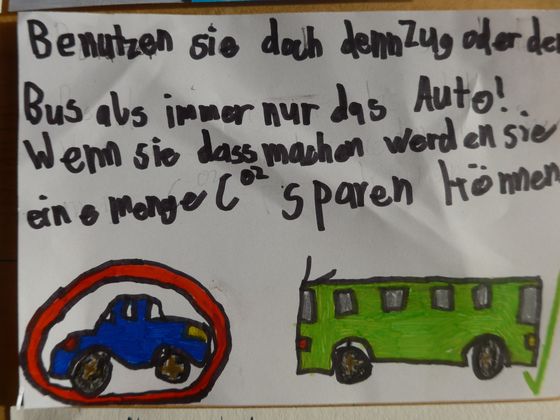 Benutzen sie doch dennZug oder den
Bus als immer nur das Auto!
Wenn sie dass machen werden sie
eine menge CO2 sparen können